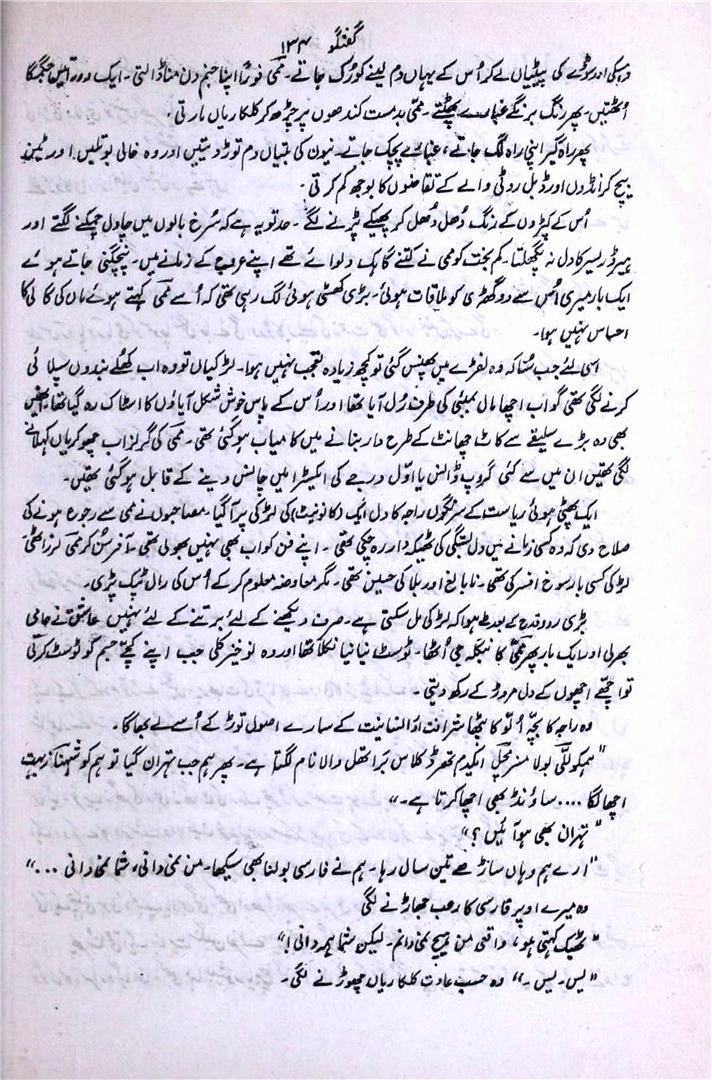 گفتگو ۱۳۴
وہسکی اور سوڈے کی پیٹیاں لے کر اُس کے یہاں دم لینے کو رُک جاتے۔ ممّی فوراً اپنا جنم دن منا ڈالتی۔ ایک دو راتیں جگمگا
اُٹھتیں۔ پھر رنگ برنگے غبارے پھٹتے۔ ممّی بدمست کندھوں پر چڑھ کر کلکاریاں مارتی۔
پھر راہ گیر اپنی راہ لگ جاتے، غبارے پچک جاتے۔ نیون کی بتیاں دم توڑ دیتیں اور وہ خالی بوتلیں اور ٹین
بیچ کر انڈوں اور ڈبل روٹی والے کے تقاضوں کا بوجھ کم کرتی۔
اُس کے کپڑوں کے رنگ دُھل دُھل کر پھیکے پڑنے لگے۔ حد تو یہ ہے کہ سُرخ بالوں میں چاول چمکنے لگتے اور
ہیرڈریسر کا دل نہ پگھلتا۔ کم بخت کو ممی نے کتنے گاہک دلوائے تھے اپنے عروج کے زمانے میں۔ پنچگنی جاتے ہوئے
ایک بار میری اُس سے دو گھڑی کو ملاقات ہوئی۔ بڑی کھٹی ہوئی لگ رہی تھی کہ اُسے ممّی کہتے ہوئے ماں کی گالی کا
احساس نہیں ہوا۔
اسی لئے جب سُنا کہ وہ لفڑے میں پھنس گئی تو کچھ زیادہ تعجب نہیں ہوا۔ لڑکیاں تو وہ اب کھلے بندوں سپلائی
کرنے لگی تھی گو اب اچھا مال بمبئی کی طرف رُل آیا تھا اور اُس کے پاس خوش شکل آیاؤں کا اسٹاک رہ گیا تھا۔ انھیں
بھی وہ بڑے سلیقے سے کاٹ چھانٹ کے طرح دار بنانے میں کامیاب ہو گئی تھی۔ ممّی کی گرلز اب چھوکریاں کہلانے
لگی تھیں ان میں سے کئی گروپ ڈانس یا اوّل درجے کی ایکسٹرا میں چانس دینے کے قابل ہو گئی تھیں۔
ایک پھٹی ہوئی ریاست کے سرنگوں راجہ کا دل ایک (کانونیٹ) کی لڑکی پر آ گیا۔ مصاحبوں نے ممی سے رجوع ہونے کی
صلاح دی کہ وہ کسی زمانے میں دل بستگی کی ٹھیکہ دار رہ چکی تھی۔ اپنے فن کو اب بھی نہیں بھولی تھی۔ آفر سُن کر ممّی لرز اٹھی۔
لڑکی کسی بارسوخ افسر کی تھی۔ نابالغ اور بلا کی حسین تھی۔ مگر معاوضہ معلوم کر کے اُس کی رال ٹپک پڑی۔
بڑی ردوقدح کے بعد طے ہوا کہ لڑکی مل سکتی ہے۔ صرف دیکھنے کے لئے برتنے کے لئے نہیں عاشق نے حامی
بھر لی اور ایک بار پھر ممّی کا بنگلہ جی اُٹھا۔ ٹوسٹ نیا نیا نکلا تھا اور وہ نوخیز کلی جب اپنے کچّے جسم کو ٹوسٹ کرتی
تو اچھے اچھوں کے دل مروڑ کے رکھ دیتی۔
وہ راجہ کا بچّہ اُلّو کا پٹھا شرافت اور انسانیت کے سارے اصول توڑ کے اُسے لے بھاگا۔
"ہم کو لگّی بولا مسز چیل ایکدم تھرڈ کلاس بَراتھل والا نام لگتا ہے۔ پھر ہم جب تہران گیا تو ہم کو شہناز بہت
اچھا لگا .... ساؤنڈ بھی اچھا کرتا ہے۔"
"تہران بھی ہو آئیں؟"
"ارے ہم وہاں ساڑھے تین سال رہا۔ ہم نے فارسی بولنا بھی سیکھا۔ من نمی دانی، شما نمی دانی ..."
وہ میرے اوپر فارسی کا رعب جھاڑنے لگی
"ٹھیک کہتی ہو، واقعی من ہیچ نمی دانم۔ لیکن شما ہمہ دانی!"
"یس۔ یس۔" وہ حسب عادت کلکاریاں چھوڑنے لگی۔